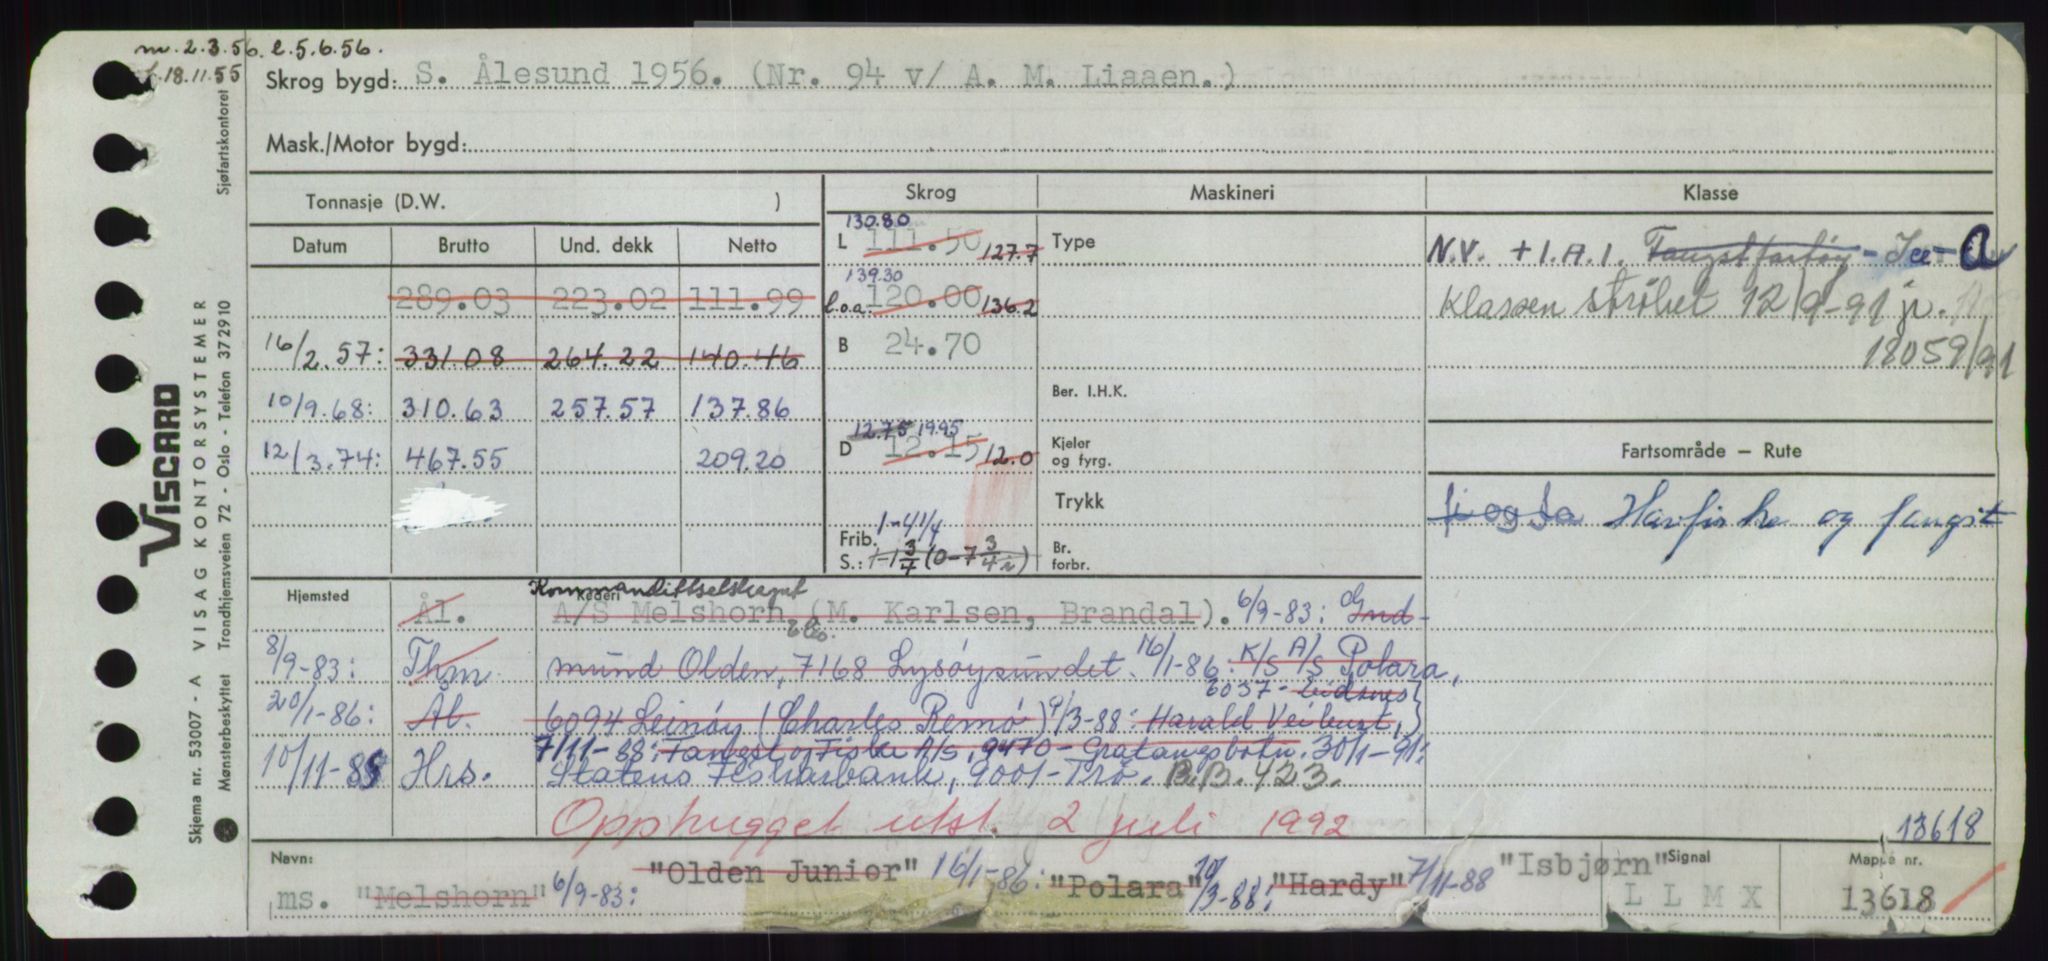 m. 2.3.56. l. 5.6.56.
18.11.55
Skrog bygd: S. Ålesund 1956. (Nr. 94 v/ A. M. Liaaen.)
Mask./Motor bygd:
Tonnasje (D.W. ) Skrog Maskineri Klasse
Datum Brutto Und. dekk Netto
130.80
L 111.50 127.7 Type
N.V. + 1.A.1. Fangstfartøy - Ice - A
289.03 223.02 111.99
139.30
l.o.a. 120.00 136.2
Klassen strøket 12/9-91 jr.
16/2.57: 331.08 264.22 140.46 B 24.70
18059/91
10/9.68: 310.63 257.57 137.86 Ber. I.H.K.
12.75 19.95
12/3.74: 467.55 209.20 D 12.15 12.0 Kjeler og fyrg.
Fartsområde – Rute
Trykk
fi og fa Havfiske og fangst
1-4 1/4
Frib. S.: 1-1 3/4 (0-7 3/4 i) Br. forbr.
Hjemsted Rederi
Kommandittselskapet
Ål. A/S Melshorn (M. Karlsen, Brandal). 6/9-83: Gud-
8/9-83: Thm mund Olden, 7168 Lysøysundet. 16/1-86: K/S A/S Polara,
6037 - Eidsnes
20/1-86: Ål. 6094 Leinøy (Charles Remø) 9/3-88: Harald Veibust,
7/11-88: Fangst og Fiske A/S, 9470 - Gratangsbotn. 30/1-91:
10/11-88 Hrs. Statens Fiskarbank, 9001 - Trø. B.B. 423.
Opphugget utst. 2 juli 1992
13618
Navn: Signal Mappe nr.
ms. "Melshorn" 6/9-83: "Olden Junior" 16/1-86: "Polara" 10/3-88: "Hardy" 7/11-88 "Isbjørn" L L M X 13618
VISCARD
VISAG KONTORSYSTEMER
Skjema nr. 53007 - A
Mønsterbeskyttet Trondhjemsveien 72 - Oslo - Telefon 37 29 10 Sjøfartskontoret